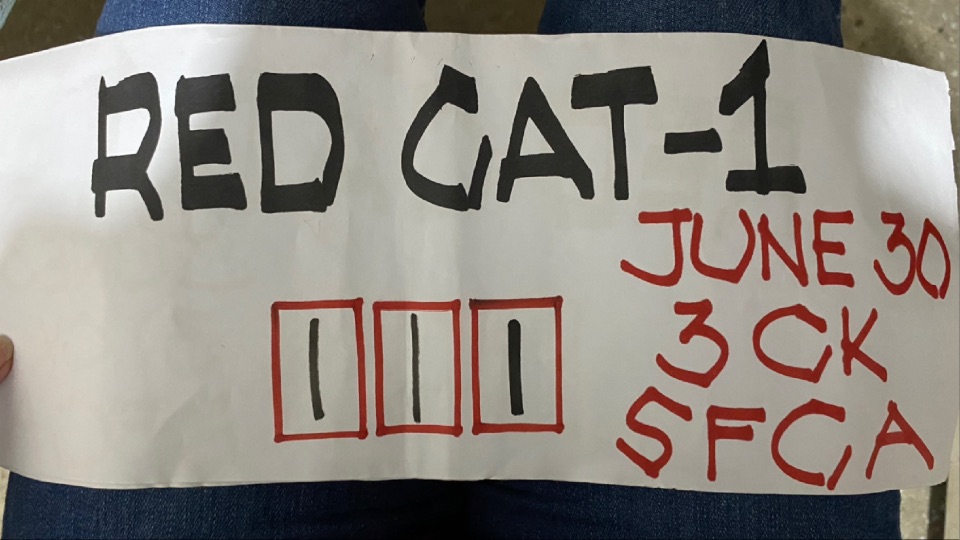 RED CAT-1
JUNE 30
3 CK
SFCA
| | |